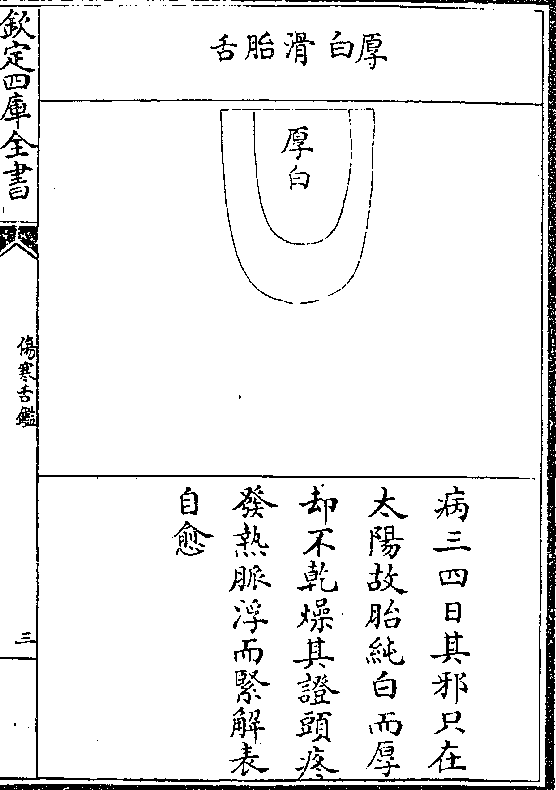 厚白滑胎舌
厚白
病三四日其邪只在
太陽故胎純白而厚
却不乾燥其證頭疼
發熱脈浮而緊解表
自愈
欽定四庫全書
傷寒舌鑑
三